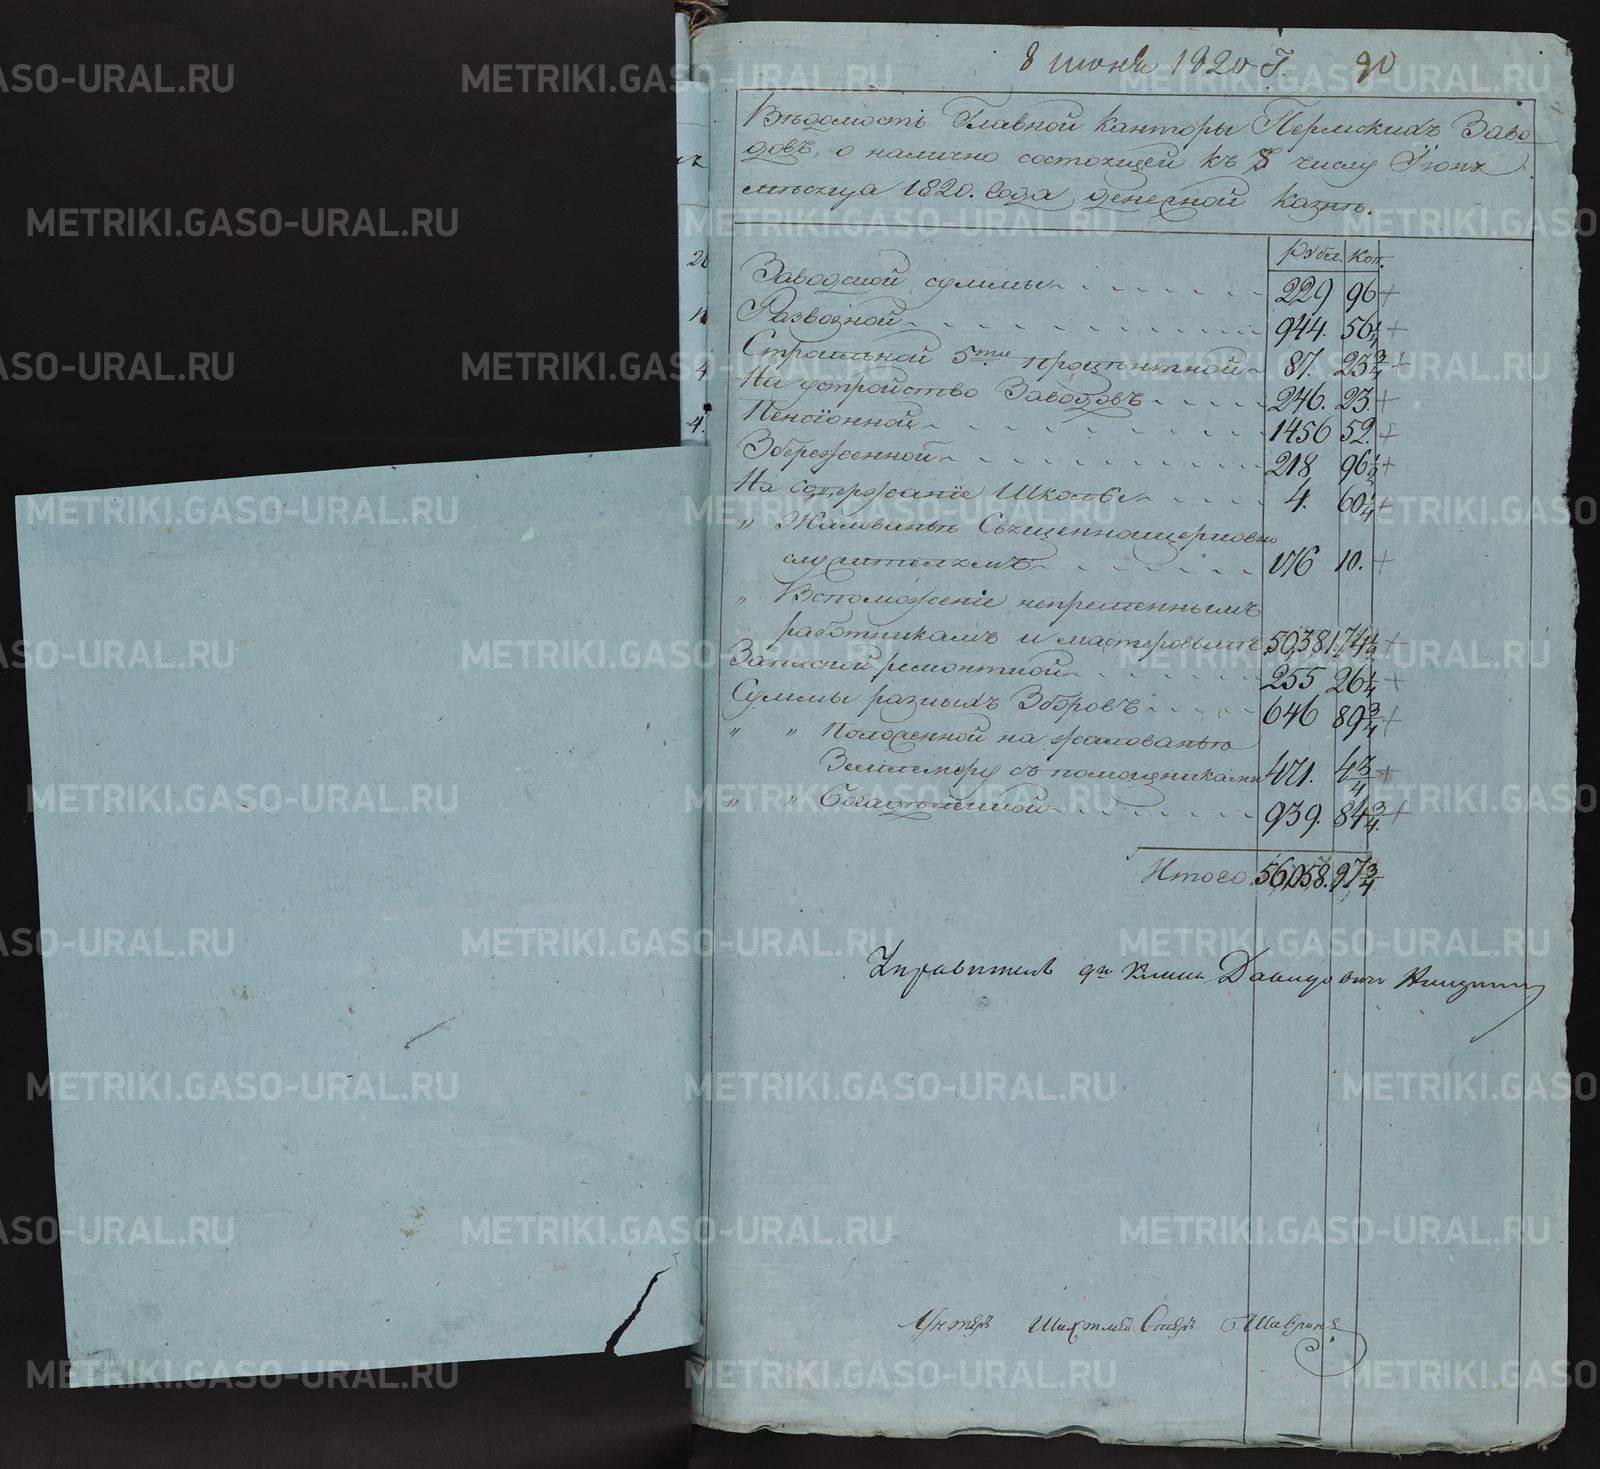 8 июня 1820 г. 90
Вѣдомость Главной канторы Пермскихъ Заво
довъ, о налично состоящей къ 8 числу Іюня
мѣсяца 1820. года денежной казнѣ.
рубл. коп.
Заводской суммы 229 96 +
Развозной 944. 56 1/4 +
Строильной 5ти процѣнтной 87. 23 3/4 +
На устройство Заводовъ 246. 23. +
Пенсіонной 1456 52. +
Збереженной 218 96 1/2 +
На содержаніе Школъ 4. 60 1/4 +
„ Жалованье Священноцерковно
служителямъ 176 10. +
„ Вспоможеніе непременнымъ
работникамъ и мастеровымъ 50,381. 74 1/2 +
Запасной ремонтной 255 26 1/4 +
Суммы разныхъ Зборовъ 646 89 3/4 +
„ „ Положенной на жалованье
Землемеру съ помощниками 471. 4 3/4 +
„ „ Богадѣленной 939. 84 3/4 +
Итого 56,058. 97 3/4
Управитель Давидовичь
Унтеръ Шихтмейстеръ Шавринъ
20
4
4.
METRIKI.GASO-URAL.RU